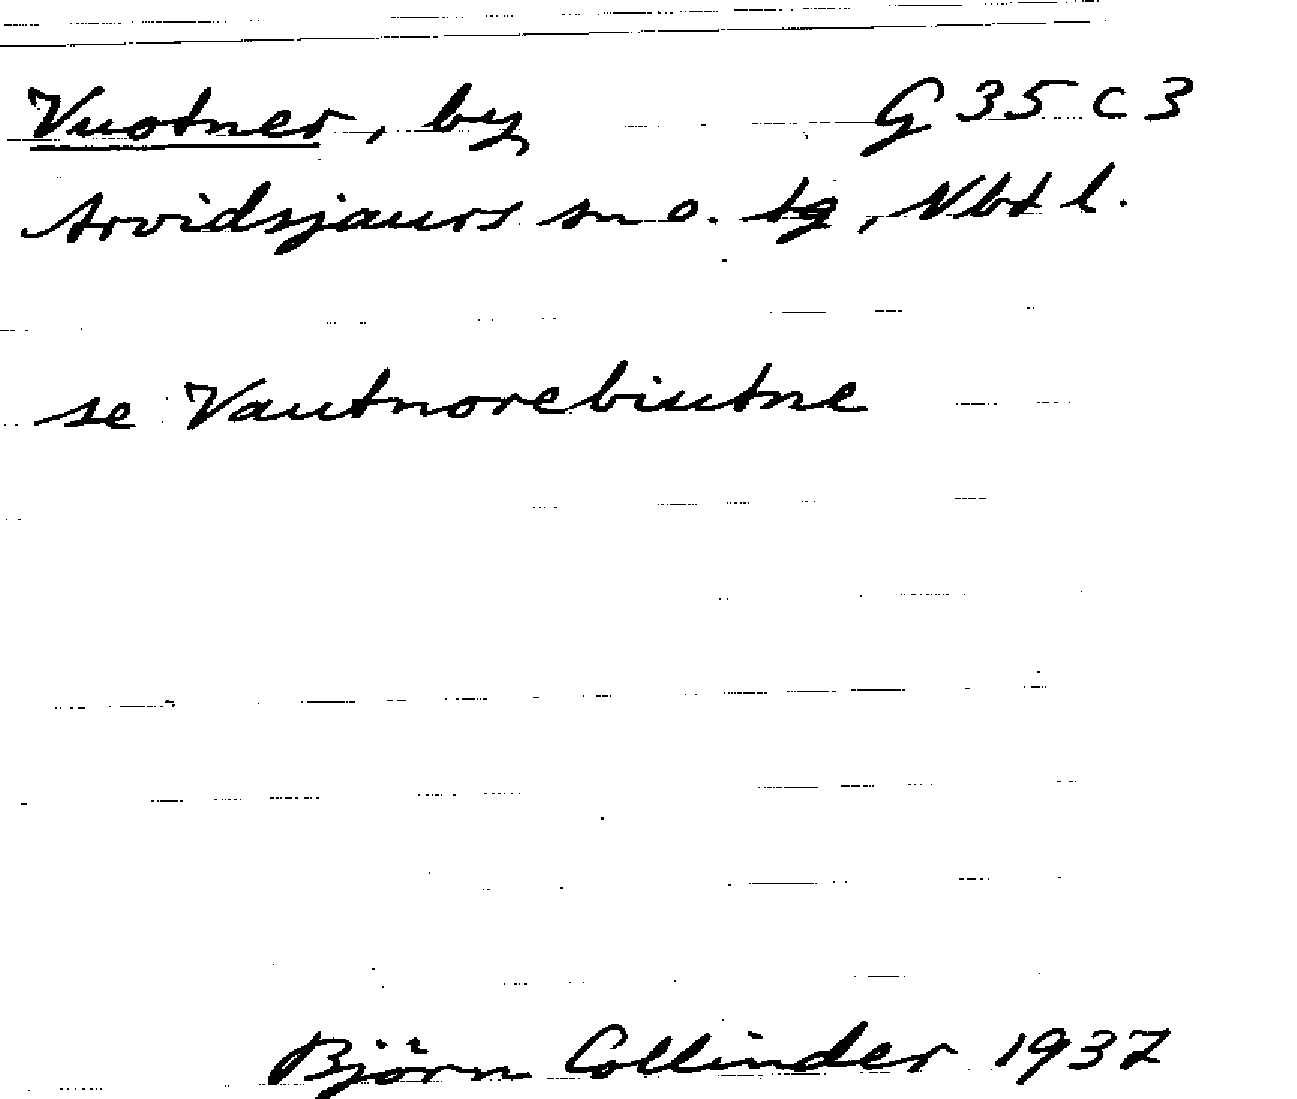 Vuotner, by G 35 C 3
Arvidsjaurs sn o. tg, Nbt l.
se Vautnorebiutne
Björn Collinder 1937